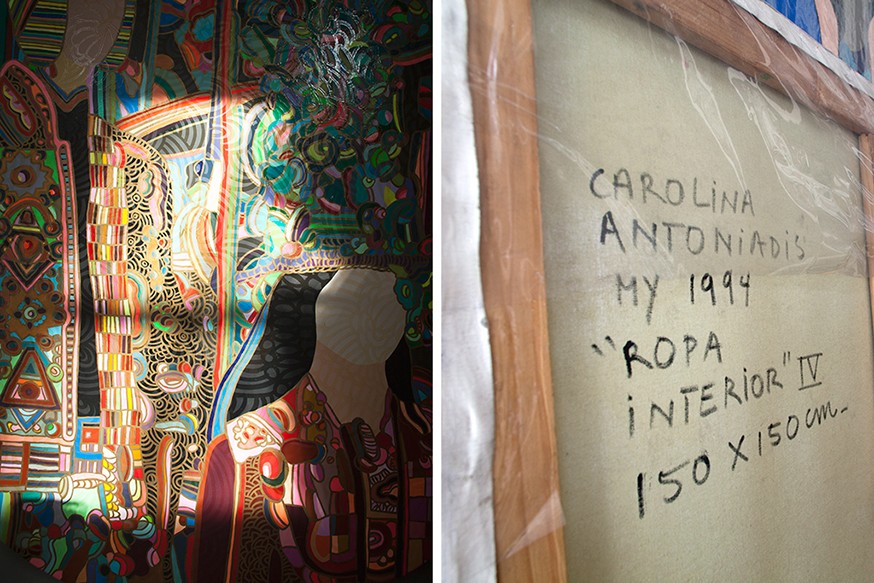 CAROLINA
ANTONIADIS
MY 1994
"ROPA
INTERIOR" IV
150 X 150 cm_